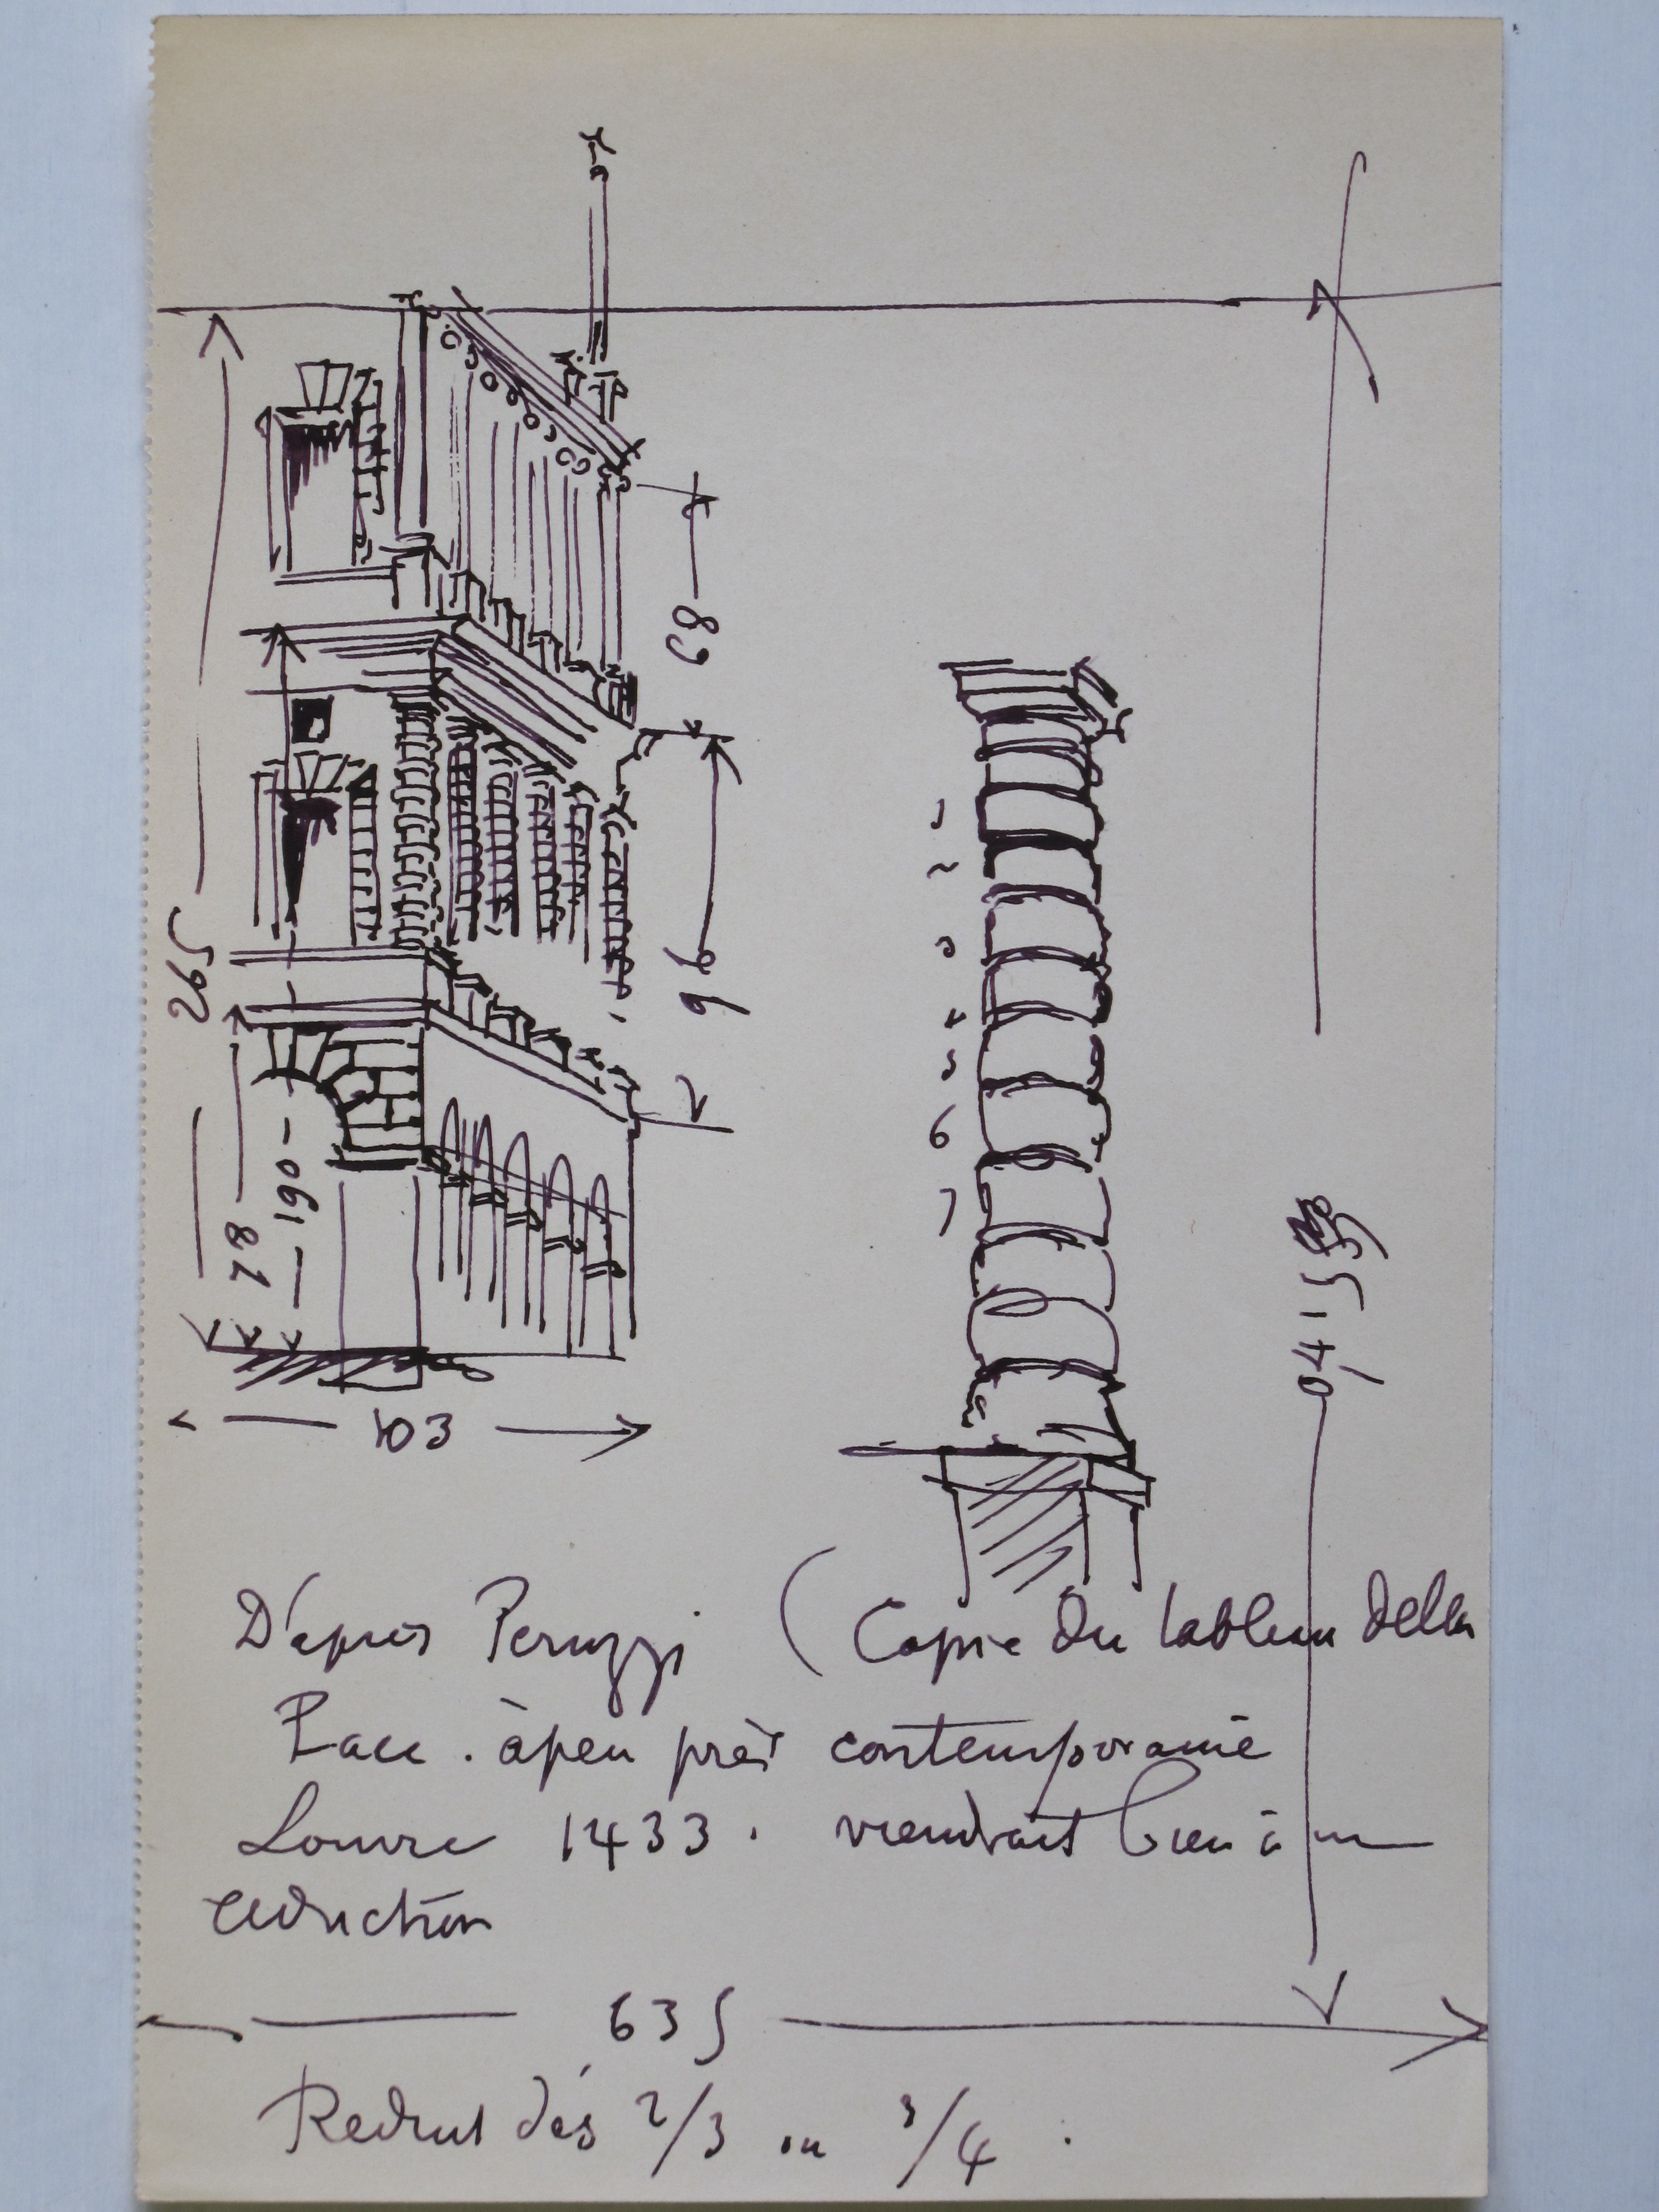 265
190
82
103
89
1
2
3
4
5
6
7
D'après Peruzzi (Copie du tableau della
Pace. à peu près contemporaine
Louvre 1433. viendrait bien à un
reduction
635
Reduit des 2/3 ou 3/4.